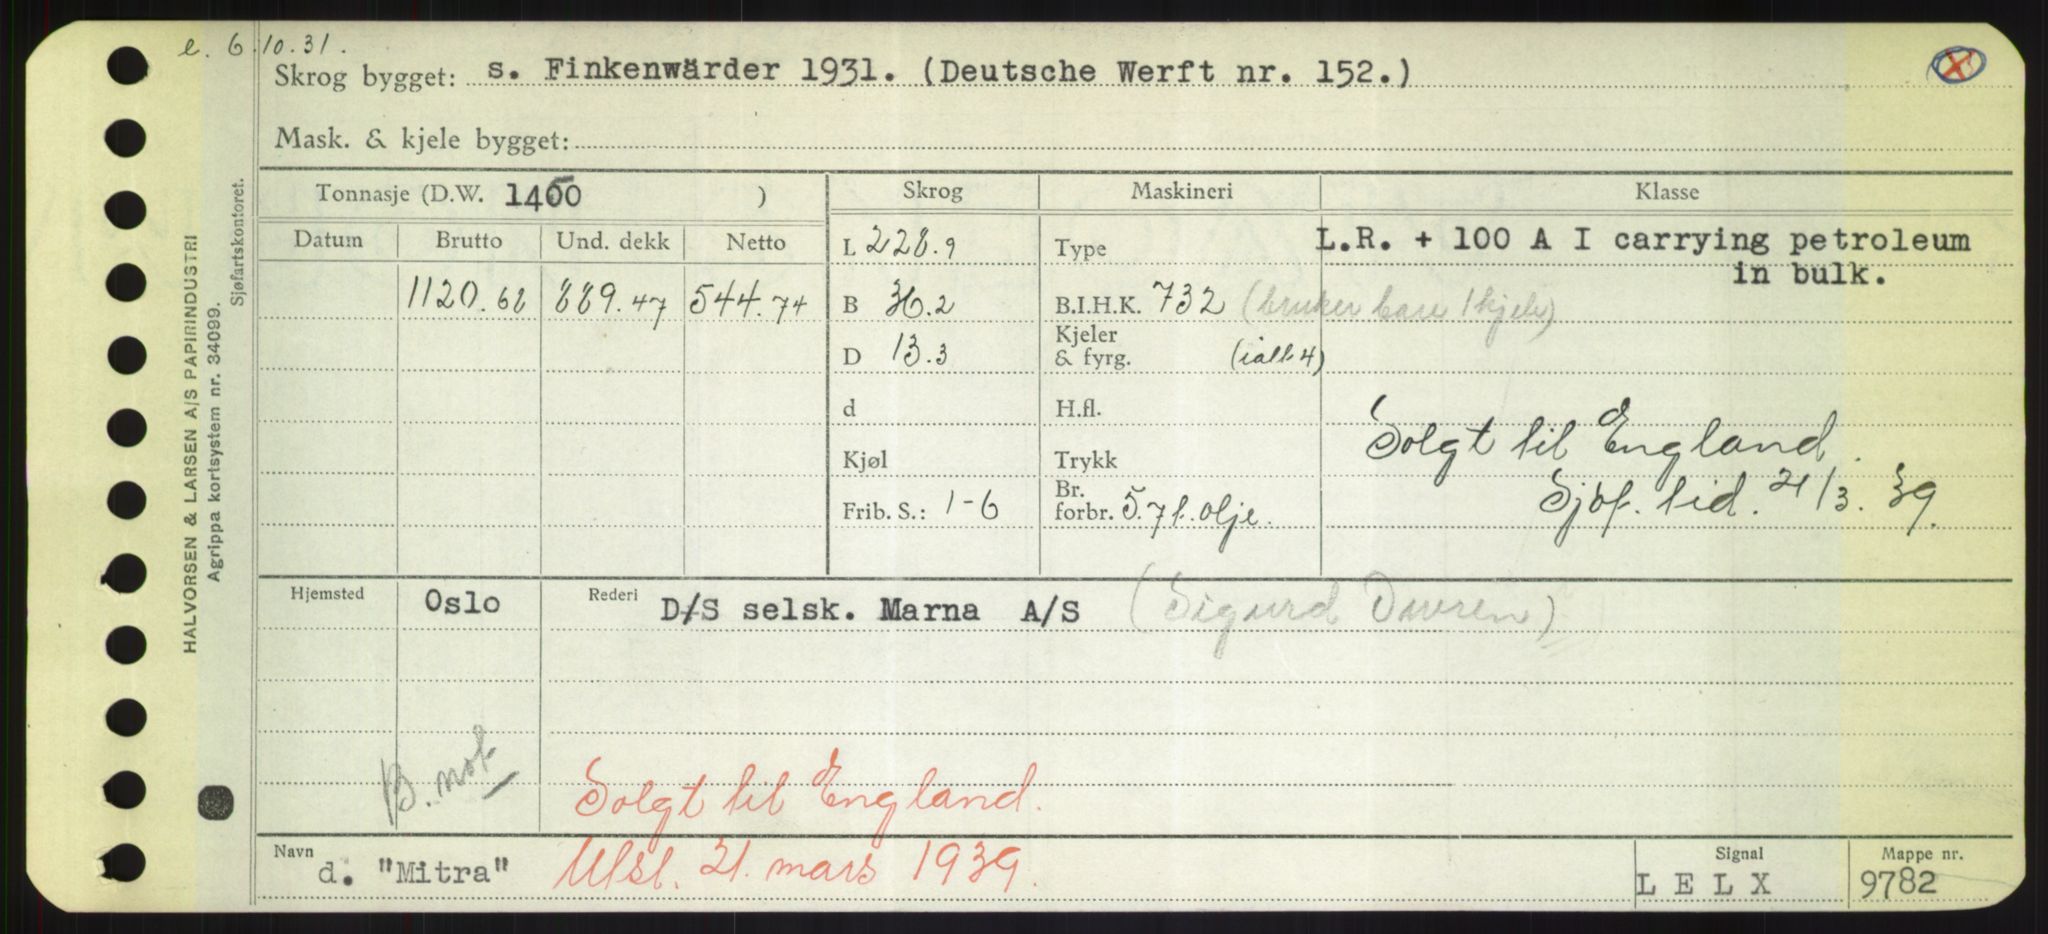 e. 6.10.31.
Skrog bygget: s. Finkenwärder 1931. (Deutsche Werft nr. 152.)
Mask. & kjele bygget:
Tonnasje (D.W. 1400 )
Skrog
Maskineri
Klasse
Datum Brutto Und. dekk Netto
1120.68 889.47 544.74
L 228.9
B 36.2
D 13.3
d
Kjøl
Frib. S.: 1-6
Type
B.I.H.K. 732 (bruker bare 1 kjele)
Kjeler
& fyrg. (ialt 4)
H.fl.
Trykk
Br.
forbr. 5.7 t. olje.
L.R. + 100 A I carrying petroleum
in bulk.
Solgt til England.
Sjøf. tid. 21/3. 39.
Hjemsted Oslo
Rederi D/S selsk. Marna A/S (Sigurd
B. not
Solgt til England.
Navn d. "Mitra" Utsl. 21. mars 1939.
Signal
L E L X
Mappe nr.
9782
HALVORSEN & LARSEN A/S PAPIRINDUSTRI
Agrippa kortsystem nr. 34099.
Sjøfartskontoret.